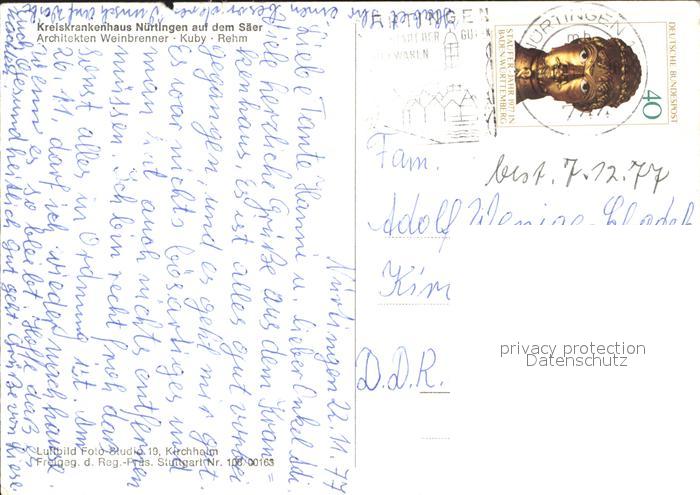 Kreiskrankenhaus Nürtingen auf dem Säer
Architekten Weinbrenner · Kuby · Rehm
Nürtingen 22.11.77
Liebe Tante Hanni u. lieber Onkel Adi.
Viele herzliche Grüße aus dem Kran=
kenhaus. Es ist alles gut vorbei
gegangen, und es geht mir gut.
Es war nichts bösartiges und
man hat auch nichts entfernen
müssen. Ich bin recht froh daß
sonst alles in Ordnung ist. Am
26.11. darf ich wieder nach hause,
wenn es so bleibt. Hoffe daß es
Euch Gesundheitlich gut geht. Grüße von Liese
Luftbild Foto-Studio 19, Kirchheim
Freigeg. d. Reg.-Präs. Stuttgart Nr. 108/00163
NÜRTINGEN
DEUTSCHE BUNDESPOST
40
STAUFER-JAHR 1977 IN
BADEN-WÜRTTEMBERG
Fam.
best. 7.12.77
Adolf
D.D.R.
privacy protection
Datenschutz